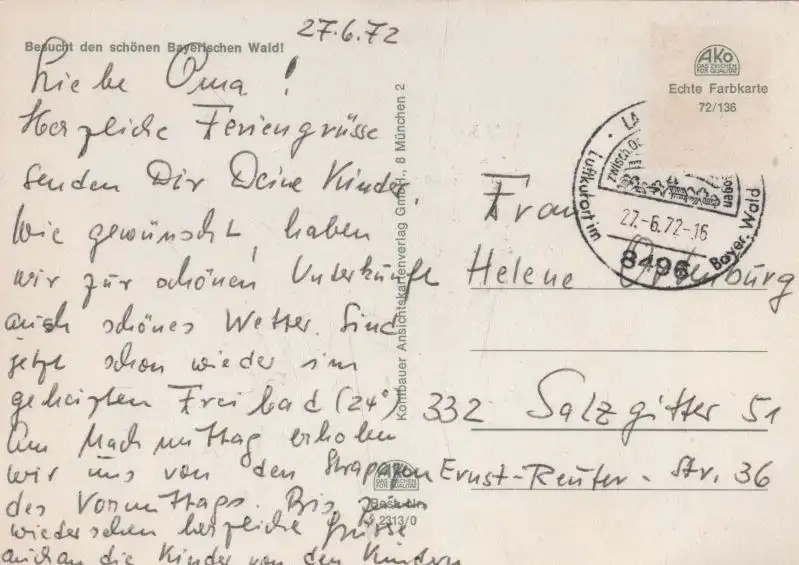 27.6.72
Besucht den schönen Bayerischen Wald!
Liebe Oma!
Herzliche Feriengrüsse
senden Dir Deine Kinder.
Wie gewünscht, haben
wir zur schönen Unterkunft
auch schönes Wetter. Sind
jetzt schon wieder im
geheizten Freibad (24°).
Am Nachmittag erholen
wir uns von den Strapazen
des Vormittags. Bis zum
wiedersehen herzliche Grüsse
auch an die Kinder von den Kindern
Kohlbauer Ansichtskartenverlag GmbH., 8 München 2
AKO
DAS ZEICHEN
FÜR QUALITÄT
Best.-Nr.
2313/0
AKO
DAS ZEICHEN
FÜR QUALITÄT
Echte Farbkarte
72/136
Luftkurort im
Bayer. Wald
27.-6.72-16
8496
Frau
Helene Ortenburg
332 Salzgitter 51
Ernst-Reuter-Str. 36